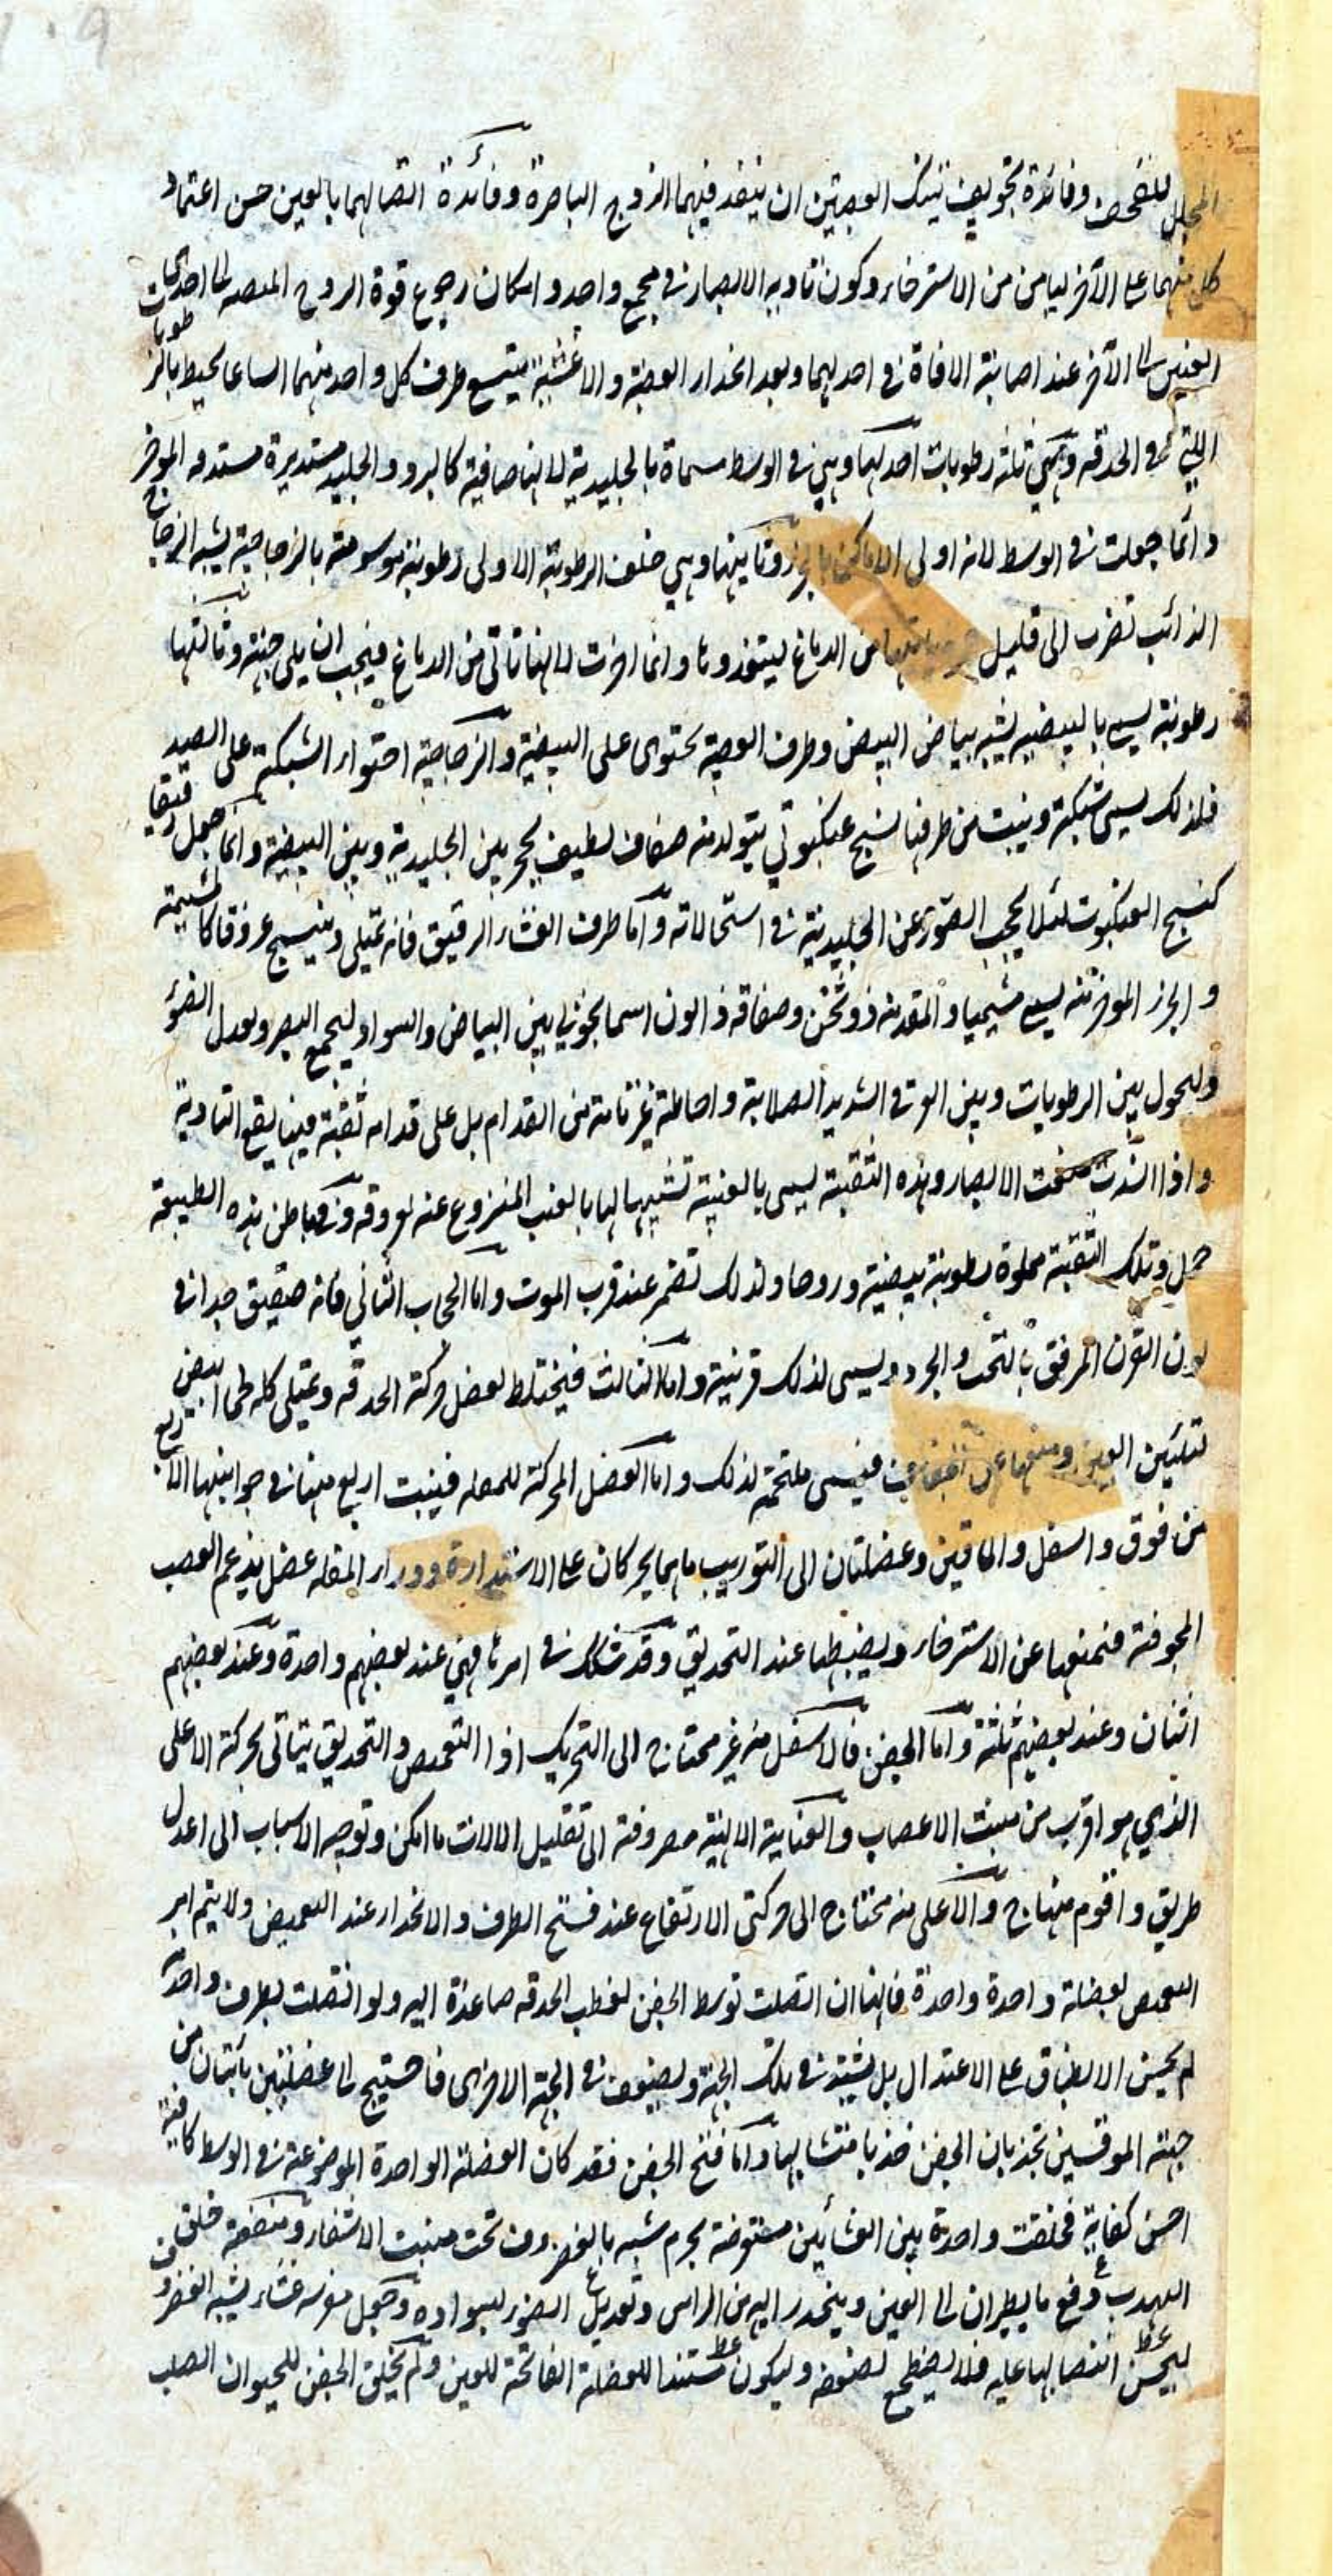 المحلل للنضج وفائدة تجويف تينك العصبتين ان ينفذ فيهما الروح الباصرة وفائدة اتصالهما بالعين حسن اعتماد
كل منهما على الآخر ليأمن من الاسترخاء وكون تأديه الابصار في مجمع واحد وامكان رجوع قوة الروح المنصبة الى احدى
العينين الى الآخر عند اصابة الافاة في احديهما وبعد انحدار العصبة والاغشية يتسع طرف كل واحد منهما اتساعا يحيط بالرطوبات
التي في الحدقه وهي ثلثه رطوبات احديهما وهي في الوسط مسماة بالجليدية لانها صافية كالبرد والجليد مستديرة مستدقه المؤخر
وانما جعلت في الوسط لانه اولى الاماكن بالحرز وثانيتها وهي خلف الرطوبة الاولى رطوبة موسومة بالزجاجية يشبه الزجاج
الذائب تضرب الى قليل من الدماغ ليتغذوها وانما اخرت لانها تأتى من الدماغ فيجب ان يلى جهته وثالثها
رطوبة يسمى بالبيضيه يشبه بياض البيض وطرف العصبة يحتوى على البيضية والزجاجية احتواء الشبكه على الصيد
فلذلك يسمى شبكة وينبت من طرفها نسج عنكبوتي يتولد منه صفاق لطيف يحجز بين الجليدية وبين البيضية وانما جعل رقيقا
كنسج العنكبوت لئلا يحجب الصور عن الجليدية في استحالاته واما طرف الغشاء الرقيق فانه يمتلى وينسج عروقا كالمشيمة
والجزء المؤخر منه يسمى مشيميا والمقدم منه ذو ثخن وصفاقه ذالون اسمانجوني بين البياض والسواد ليجمع البصر ويعدل الضوء
وليحول بين الرطوبات وبين القرني الشديد الصلابة واحاطته غير تامة من القدام بل على قدامه ثقبة فيها يقع التأدية
واذا انسدت منعت الابصار وهذه الثقبة يسمى بالعنبية تشبيها لها بالعنب المنزوع عنه عروقه وفي باطن هذه الطبيعة
خمل وتلك الثقبة مملوة رطوبة بيضية وروحا ولذلك تضمر عند قرب الموت واما الحجاب الثاني فانه صفيق جدا في
لون القرن المرقق بالنحت والجرد ويسمى لذلك قرنية واما الثالث فيختلط بعضل حركة الحدقه ويمتلى كله لحما ابيض
لتليين العين ومنعها عن فيسمى ملتحمة لذلك واما العضل المحركة للمقله فينبت اربع منها في جوانبها الاربع
من فوق واسفل والماقين وعضلتان الى التوريب ماهما يحركان على الاستدارة ووراء المقله عضل يدعم العصب
المجوفة فتمنعها عن الاسترخاء ويضبطها عند التحديق وقد شكك في امرها فهي عند بعضهم واحدة وعند بعضهم
اثنان وعند بعضهم ثلثة واما الجفن فالاسفل منه غير محتاج الى التحريك اذا التغميض والتحديق يتأتى بحركة الاعلى
الذي هو اقرب من منبت الاعصاب والعناية الالهية مصروفة الى تقليل الآلات ما امكن وتوجيه الاسباب الى اعدل
طريق واقوم منهاج والاعلى منه محتاج الى حركتى الارتفاع عند فتح الطرف والانحدار عند التغميض ولا يتم امر
التغميض بعضلة واحدة واحدة فانها ان اتصلت توسط الجفن لغطب الحدقه صاعدة اليه ولو اتصلت بطرف واحد
لم يحسن الانطباق على الاعتدال بل يشتد في تلك الجهة ويضعف في الجهة الاخرى فاحتيج الى عضلتين يأتيان من
جهة الموقين تجذبان الجفن جذبا متشابها واما فتح الجفن فقد كان العضلة الواحدة الموضوعة في الوسط كافية
احسن كفاية فخلقت واحدة بين الغشائين مفترضة بجرم شبيه بالغضروف تحت منبت الاشفار ومنفعة خلق
الهدب دفع ما يطير ان الى العين وينحدر اليه من الراس وتعديل الضوء بسواده وجعل مغرسه غشاء يشبه الغضروف
ليحسن انتصابها عليه فلا يضطجع لضعفه وليكون مستندا للعضلة الفاتحة للعين ولم يخلق الجفن للحيوان الصلب